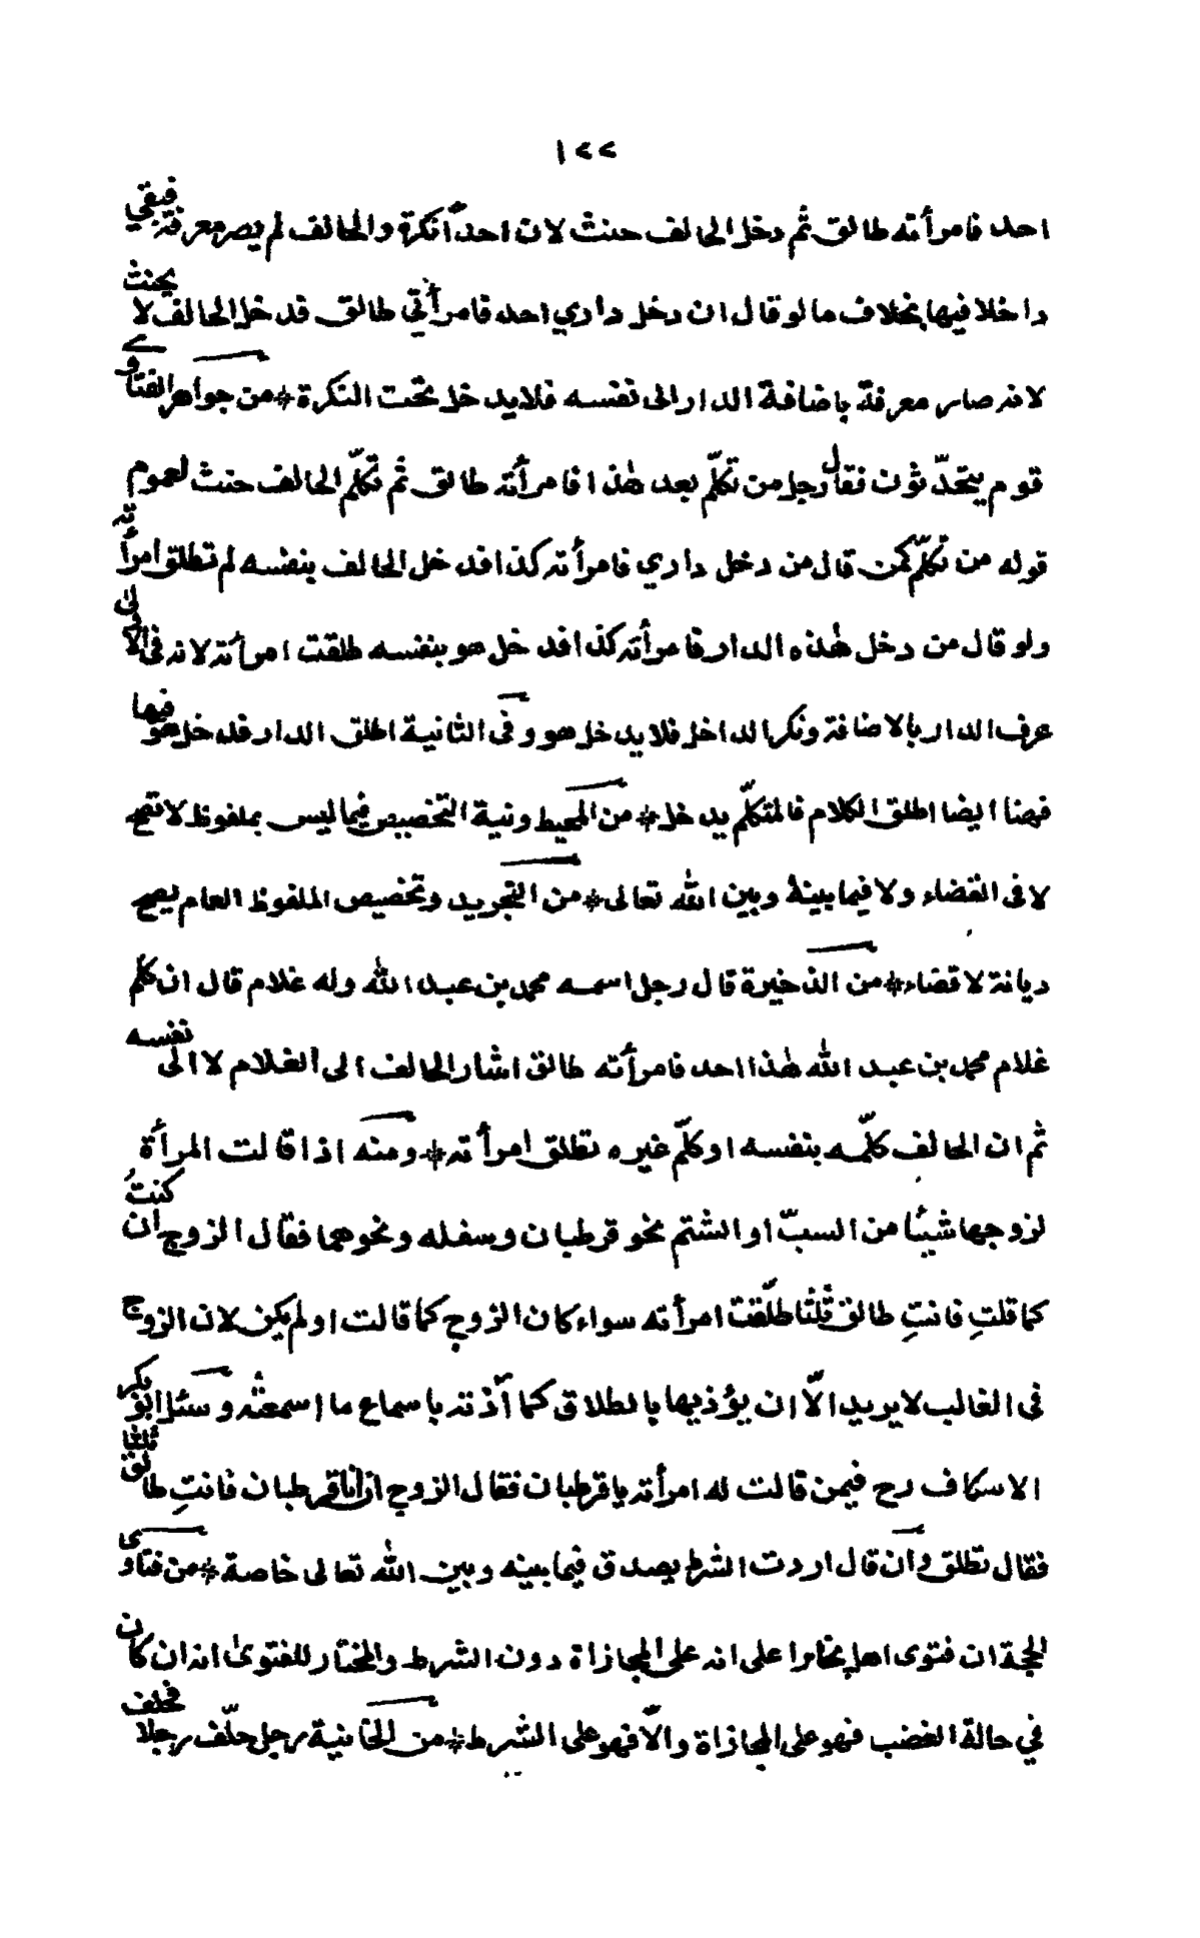 ١٧٧
احد فامرأته طالق ثم دخل الحالف حنث لان احداً نكرة والحالف لم يصر معرفة فبقي
داخلا فيها بخلاف ما لو قال ان دخل داري احد فامرأتي طالق فدخل الحالف لا يحنث
لانه صار معرفة باضافة الدار الى نفسه فلا يدخل تحت النكرة * من جواهر الفتاوي
قوم يتحدّثون فقال رجل من تكلّم بعد هذا فامرأته طالق ثم تكلّم الحالف حنث لعموم
قوله من تكلّم كمن قال من دخل داري فامرأته كذا فدخل الحالف بنفسه لم تطلق امرأته
ولو قال من دخل هذه الدار فامرأته كذا فدخل هو بنفسه طلقت امرأته لانه في الاولى
عرف الدار بالاضافة ونكر الداخل فلا يدخل هو وفي الثانية اطلق الدار فدخل هو فيها
فهنا ايضا اطلق الكلام فالمتكلّم يدخل * من المحيط ونية التخصيص فيما ليس بملفوظ لا تصح
لا في القضاء ولا فيما بينه وبين الله تعالى * من التجريد وتخصيص الملفوظ العام يصح
ديانة لا قضاء * من الذخيرة قال رجل اسمه محمد بن عبد الله وله غلام قال ان كلم
غلام محمد بن عبد الله هذا احد فامرأته طالق اشار الحالف الى الغلام لا الى نفسه
ثم ان الحالف كلّمه بنفسه او كلّم غيره تطلق امرأته * ومنه اذا قالت المرأة
لزوجها شيئا من السبّ او الشتم نحو قرطبان وسفله ونحوهما فقال الزوج ان كنتُ
كما قلتِ فانتِ طالق ثلثا طلّقت امرأته سواء كان الزوج كما قالت او لم يكن لان الزوج
في الغالب لا يريد الاّ ان يؤذيها بالطلاق كما آذته باسماع ما اسمعته وسئل ابو بكر
الاسكاف رح فيمن قالت له امرأته يا قرطبان فقال الزوج ان انا قرطبان فانتِ طالق ثلثا
فقال تطلق وان قال اردت الشرط يصدق فيما بينه وبين الله تعالى خاصة * من فتاوى
الحجة ان فتوى اهل بخارا على انه على المجازاة دون الشرط والمختار للفتوى انه ان كان
في حالة الغضب فهو على المجازاة والاّ فهو على الشرط * من الخانية رجل حلّف رجلا فحلف